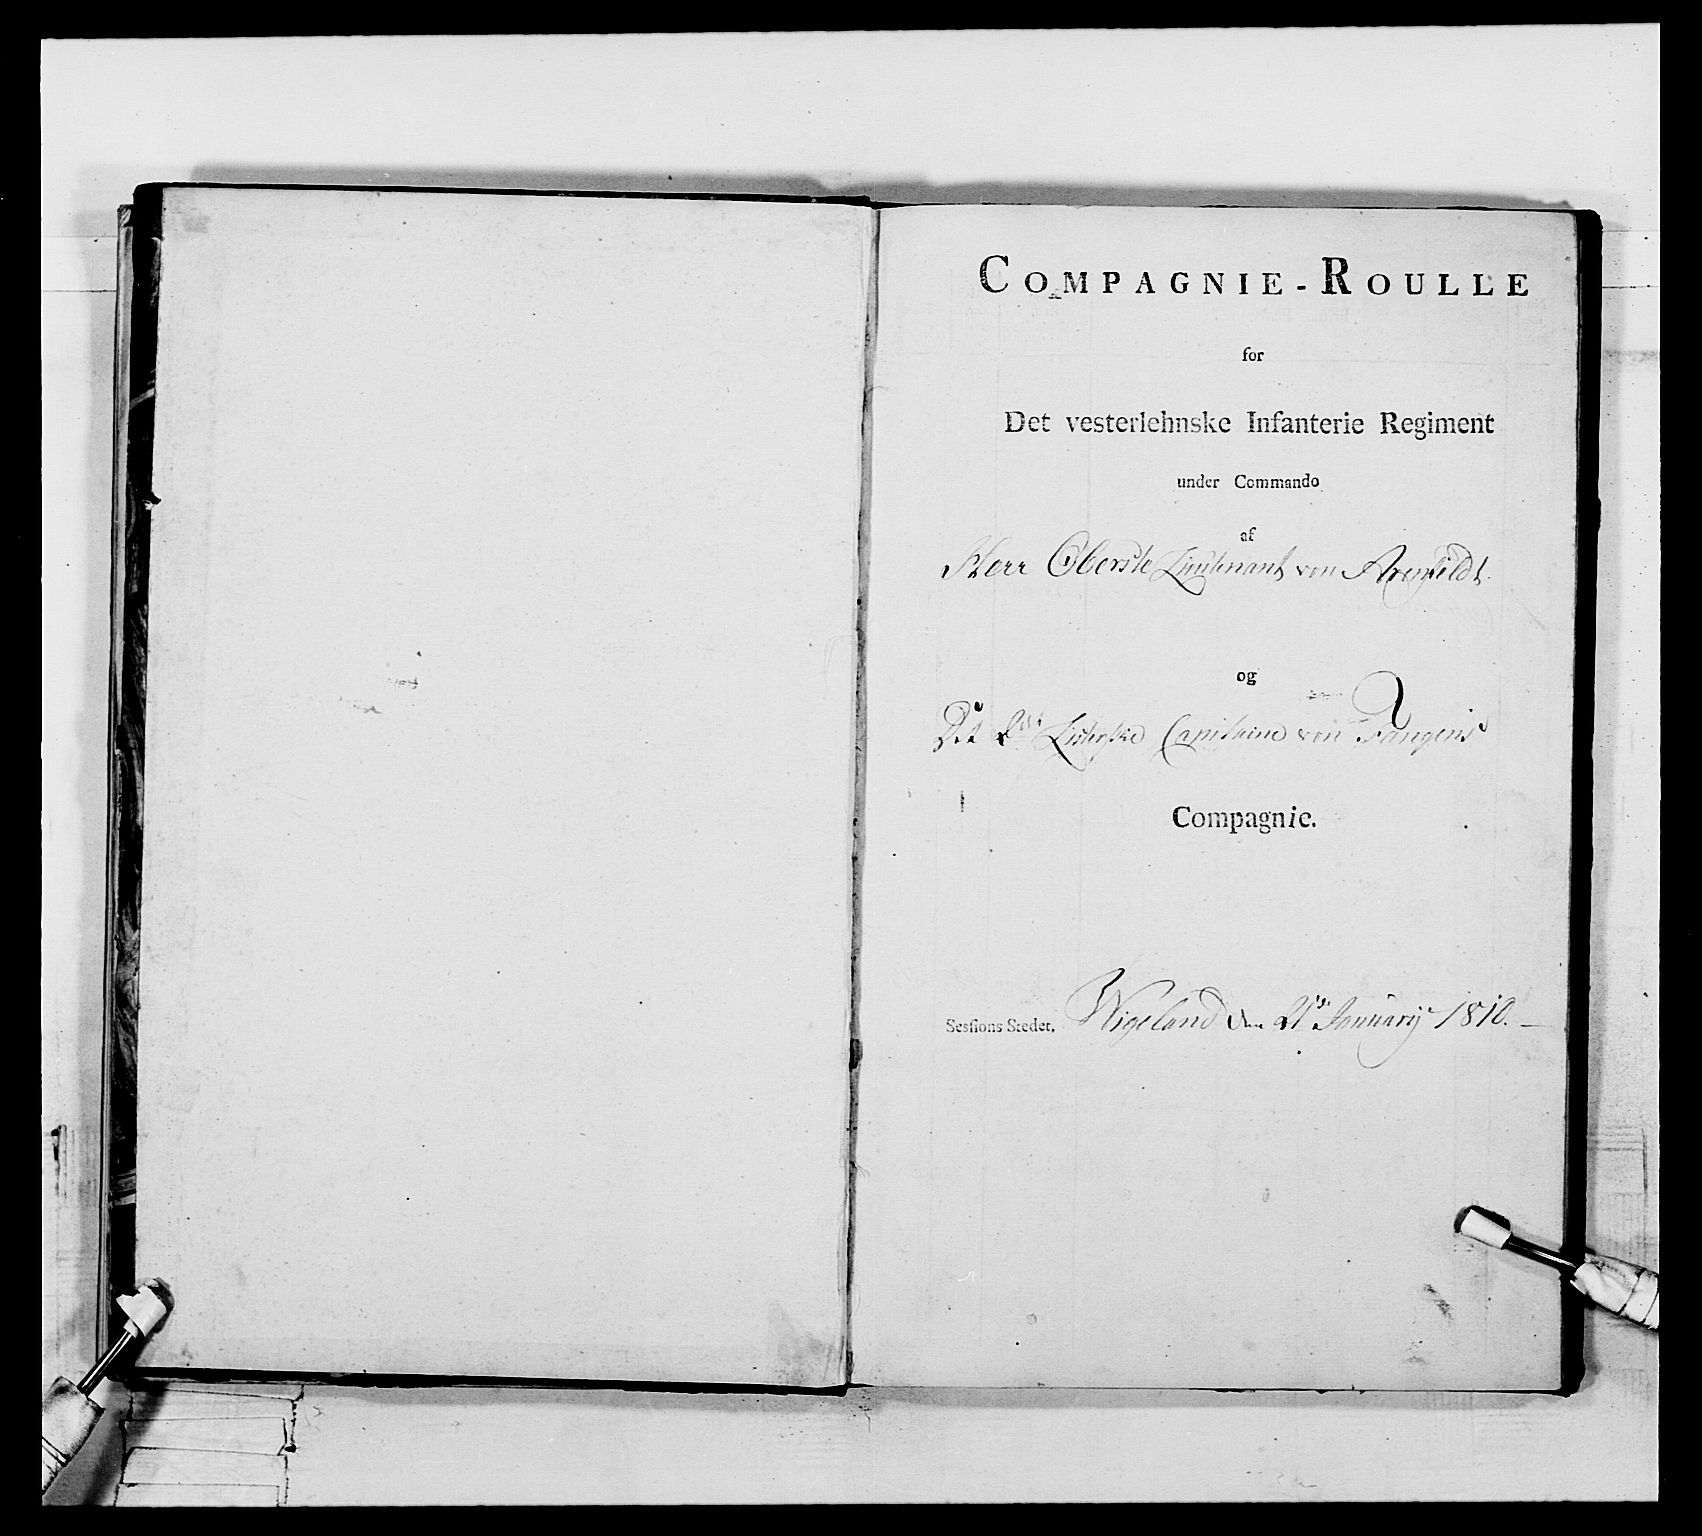 COMPAGNIE-ROULLE
for
Det vesterlehnske Infanterie Regiment
under Commando
af
Herr Oberste Lieutenant von Arenfeldt.
og
Det 2det Listerske Capitaine von Fangens
Compagnie.
Sessions Stedet, Wigeland den 21de January 1810.